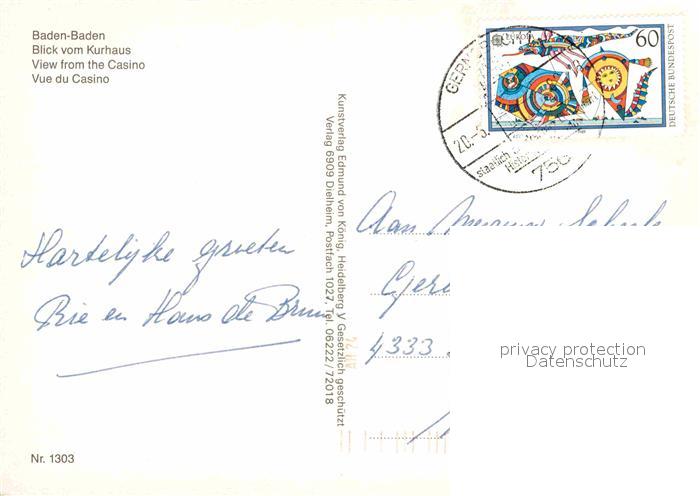 Baden-Baden
Blick vom Kurhaus
View from the Casino
Vue du Casino
EUROPA
60
DEUTSCHE BUNDESPOST
20.-5.
staatlich
756
Kunstverlag Edmund von König, Heidelberg V Gesetzlich geschützt
Verlag 6909 Dielheim, Postfach 1027, Tel. 06222/72018
Hartelijke groeten
Rie en Hans de Bruin
Aan
4333
privacy protection
Datenschutz
Nr. 1303